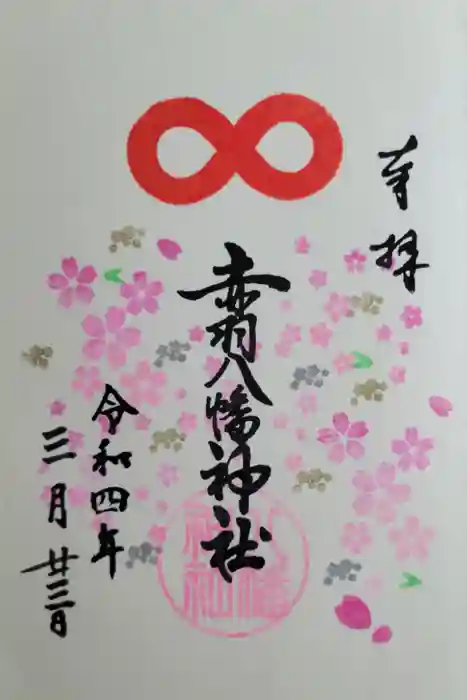 奉拝
赤羽八幡神社
令和四年
三月廿三日